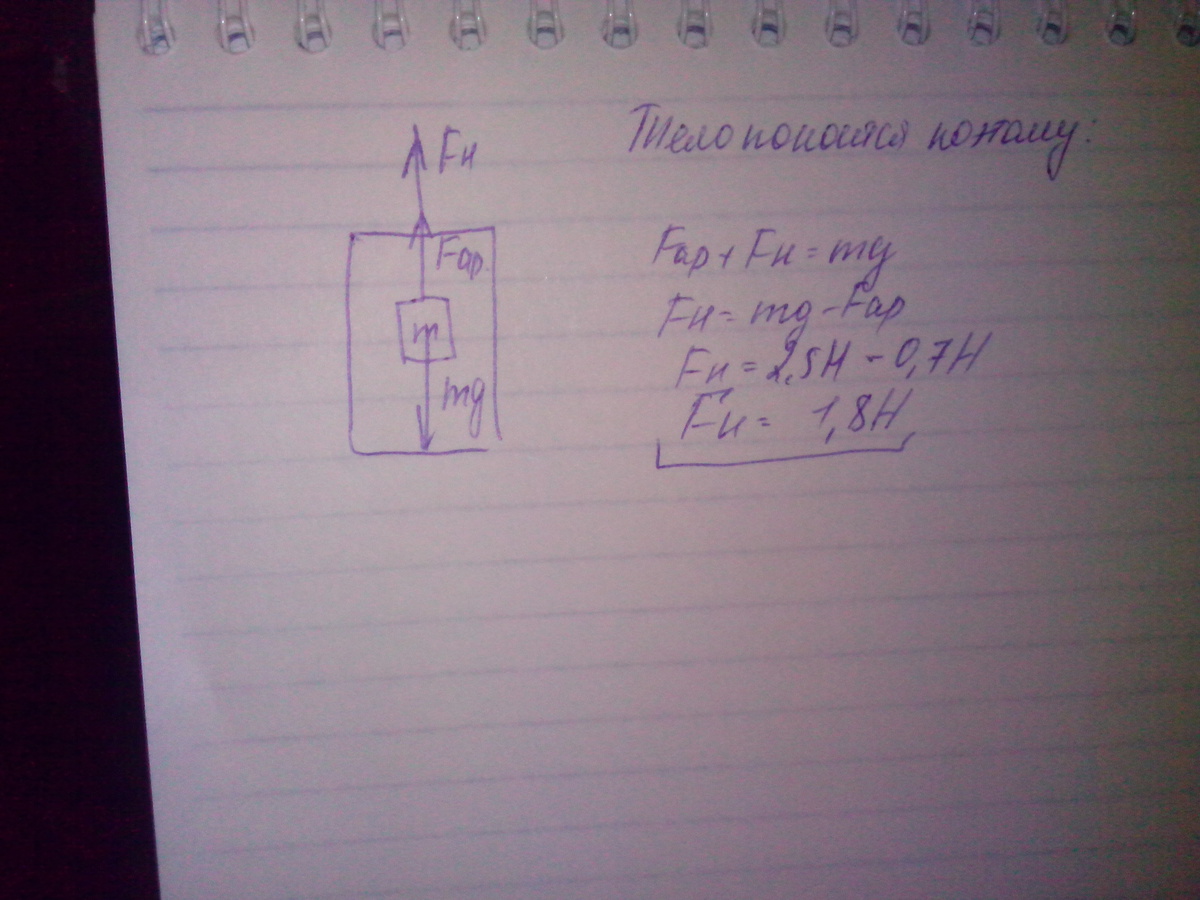 Fн
Fар
m
mg
Тело покоится поэтому:
Fар + Fн = mg
Fн = mg - Fар
Fн = 2,5Н - 0,7Н
Fн = 1,8Н